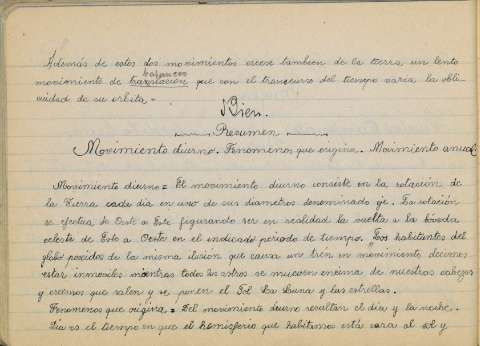 Además de estos dos movimientos creese tambien de la tierra un lento
balanceo
movimiento de translación que con el transcurso del tiempo varía la obli-
cuidad de su orbita.=
Bien.
Resumen
Movimiento diurno. Fenomenos que origina. Movimiento anual.
Movimiento diurno = El movimiento diurno consiste en la rotación de
la tierra cada dia en uno de sus diametros denominado eje. La rotación
se efectua de Oeste a Este figurando ser en realidad la vuelta a la bóveda
celeste de Este a Oeste en el indicado periodo de tiempo. Los habitantes del
globo poseidos de la misma ilusion que causa un tren en movimiento decimos
estar inmoviles mientras todos los astros se mueven encima de nuestras cabezas
y creemos que salen y se ponen el Sol La Luna y las estrellas.
Fenomenos que origina = Del movimiento diurno resultan el dia y la noche.
Dia es el tiempo en que el hemisferio que habitamos está cara al sol y